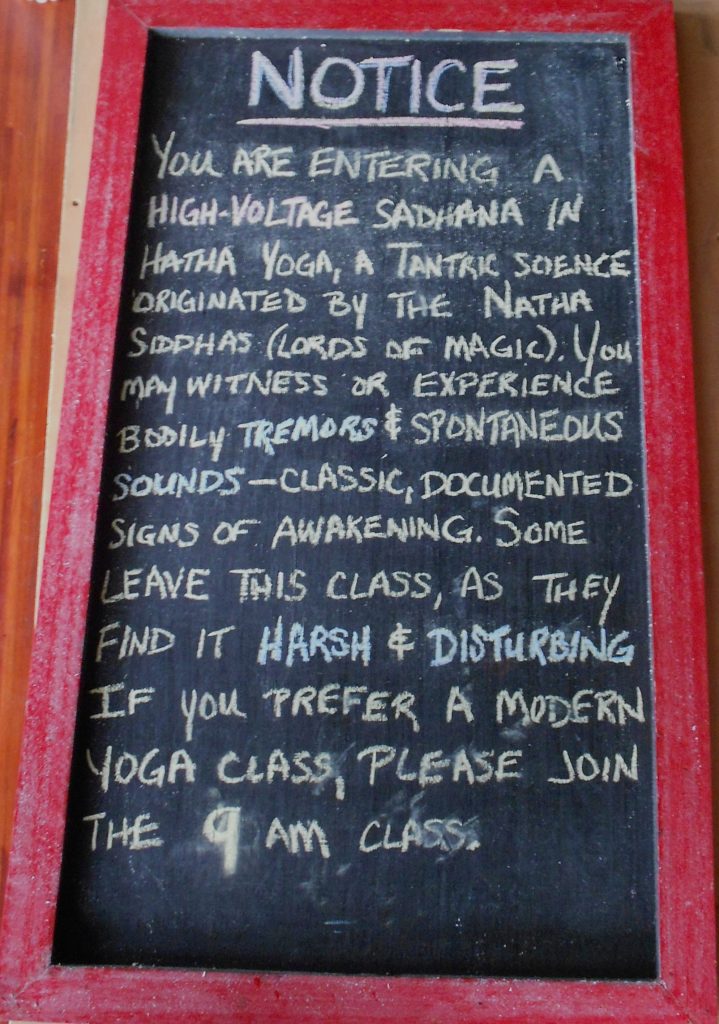 NOTICE
YOU ARE ENTERING A
HIGH-VOLTAGE SADHANA IN
HATHA YOGA, A TANTRIC SCIENCE
ORIGINATED BY THE NATHA
SIDDHAS (LORDS OF MAGIC). YOU
MAY WITNESS OR EXPERIENCE
BODILY TREMORS & SPONTANEOUS
SOUNDS — CLASSIC, DOCUMENTED
SIGNS OF AWAKENING. SOME
LEAVE THIS CLASS, AS THEY
FIND IT HARSH & DISTURBING
IF YOU PREFER A MODERN
YOGA CLASS, PLEASE JOIN
THE 9 AM CLASS.